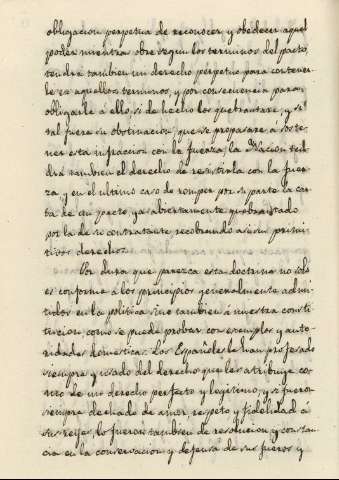 obligacion perpetua de reconocer, y obedecer aquel
poder mientras obre segun los terminos del pacto,
tendrá tambien un derecho perpetuo para contener
le en aquellos terminos, y por consecuencia para
obligarle á ello, si de hecho los quebrantare, y si
tal fuera su obstinacion, que se propasare á soste
ner esta infraccion con la fuerza, la Nacion ten
drá tambien el derecho de resistirla con la fuer
za y en el ultimo caso de romper por su parte la car
ta de un pacto, ya abiertamente quebrantado
por la de su contratante, recobrando asi sus primi
tivos derechos.
Por dura que parezca esta doctrina no solo
es conforme á los principios generalmente admi
tidos en la politica sino tambien á nuestra consti
tucion, como se puede probar con exemplos y auto
ridades domesticas. Los Españoles la han profesado
siempre y usado del derecho que les atribuye co
mo de un derecho perfecto y legitimo, y si fueron
siempre dechado de amor, respeto y fidelidad á
sus reyes, lo fueron tambien de resolucion, y constan
cia en la conservacion y defensa de sus fueros y